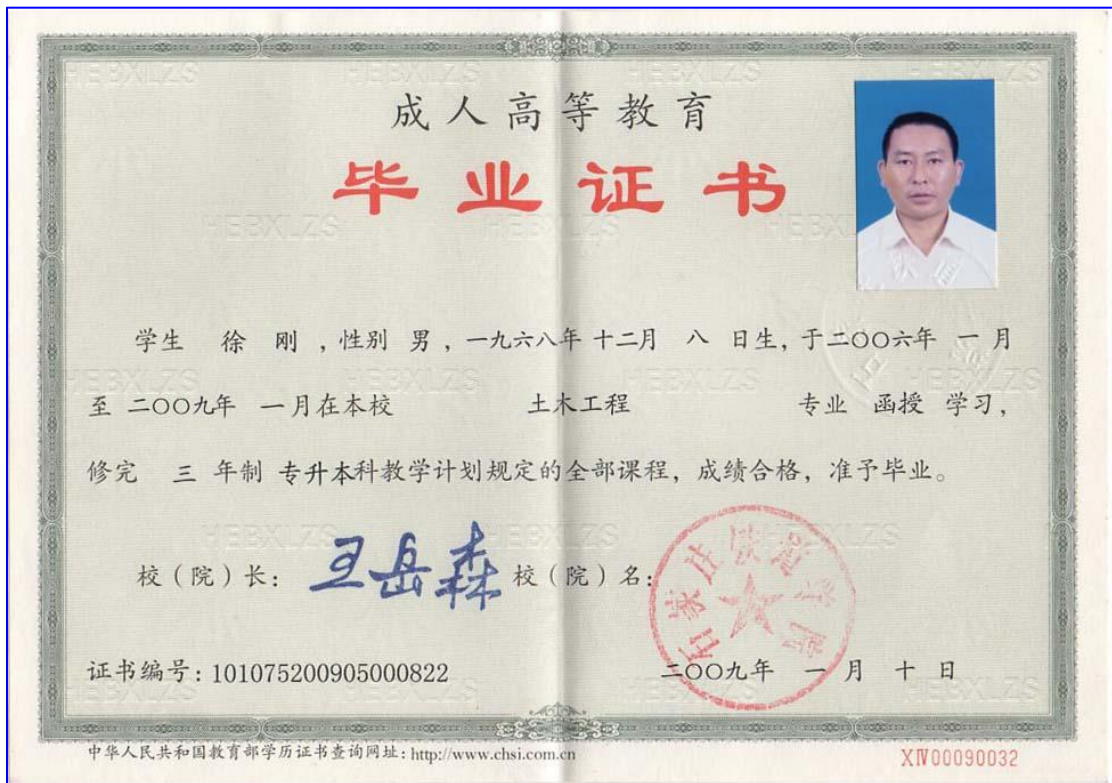 成人高等教育
毕业证书
学生 徐 刚 ，性别 男，一九六八年 十二月 八 日生，于二〇〇六年 一 月
至 二〇〇九年 一月在本校 土木工程 专业 函授 学习，
修完 三 年制 专升本科教学计划规定的全部课程，成绩合格，准予毕业。
校（院）长： 王岳森 校（院）名：
石家庄铁道学院
证书编号：101075200905000822
二〇〇九年 一 月 十 日
中华人民共和国教育部学历证书查询网址：http://www.chsi.com.cn
XⅣ00090032
HEBXLZS